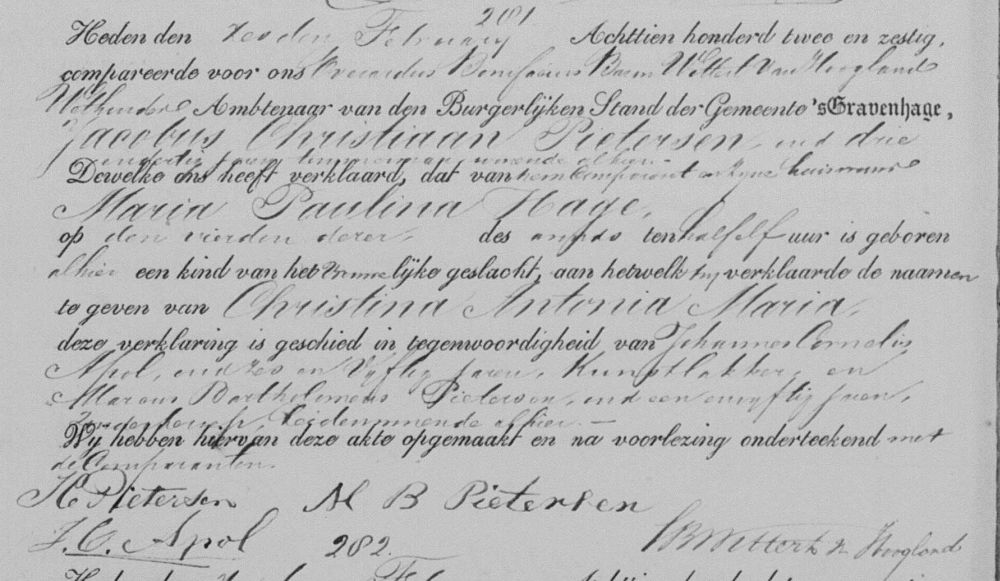 281
Heden den zesden February Achttien honderd twee en zestig,
compareerde voor ons Bonifacius Baron Wittert van Hoogland
Wethouder Ambtenaar van den Burgerlijken Stand der Gemeente 'sGravenhage,
Jacobus Christiaan Pietersen, oud drie
en dertig jaren, timmerman, wonende alhier
Dewelke ons heeft verklaard, dat van hem Comparant en zyne huisvrouw
Maria Paulina Hage,
op den vierden dezer, des avonds ten half elf uur is geboren
alhier een kind van het Vrouwelijke geslacht, aan hetwelk hy verklaarde de naamen
te geven van Christina Antonia Maria,
deze verklaring is geschied in tegenwoordigheid van Johannes Cornelis
Apol, oud zes en Vyftig jaren, Kunstlakker, en
Marcus Barthelomeus Pietersen, oud een en vyftig jaren,
beiden wonende alhier. —
Wij hebben hiervan deze akte opgemaakt en na voorlezing onderteekend met
de Comparanten.
Pietersen M B Pietersen
J. C. Apol 282. Wittert v Hoogland
Heden den Achttien honderd twee en zestig,